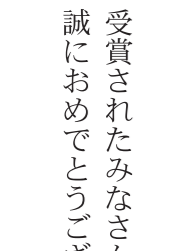 受賞されたみなさ
誠におめでとうご